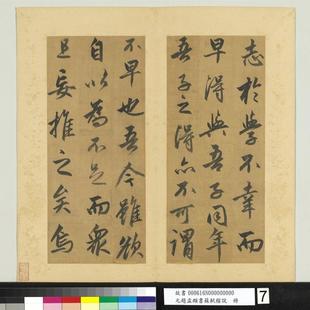 志於學不幸而
早得與吾子同年
吾子之得亦不可謂
不早也吾今雖欲
自以為不足而衆
且妄推之矣烏
故書 000616N000000000
元趙孟頫書蘇軾稼說 冊
7